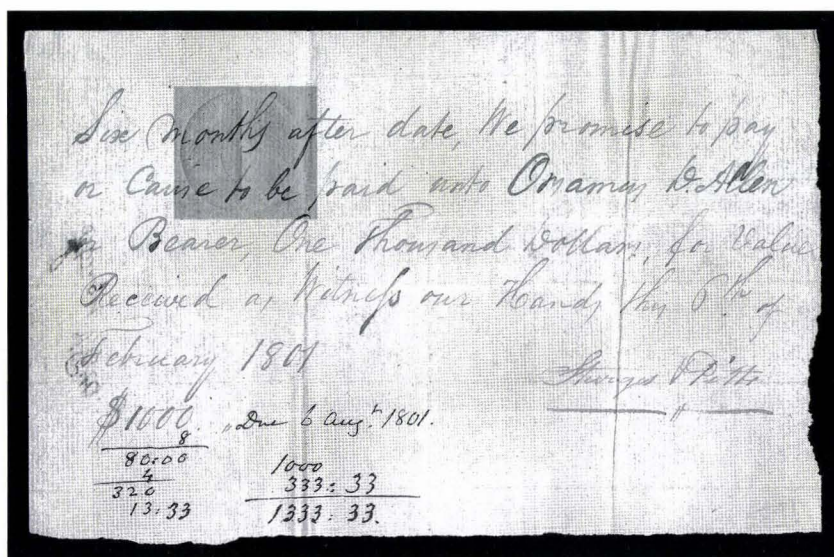 Six months after date, We promise to pay
or Cause to be paid unto Onamus D. Allen
or Bearer, One Thousand Dollars, for Value
Received as Witness our Hands this 6th of
February 1801
Sturges & Pitts
$1000. Due 6 Augt. 1801.
8
80:00
4
320
13:33
1000
333:33
1333:33.